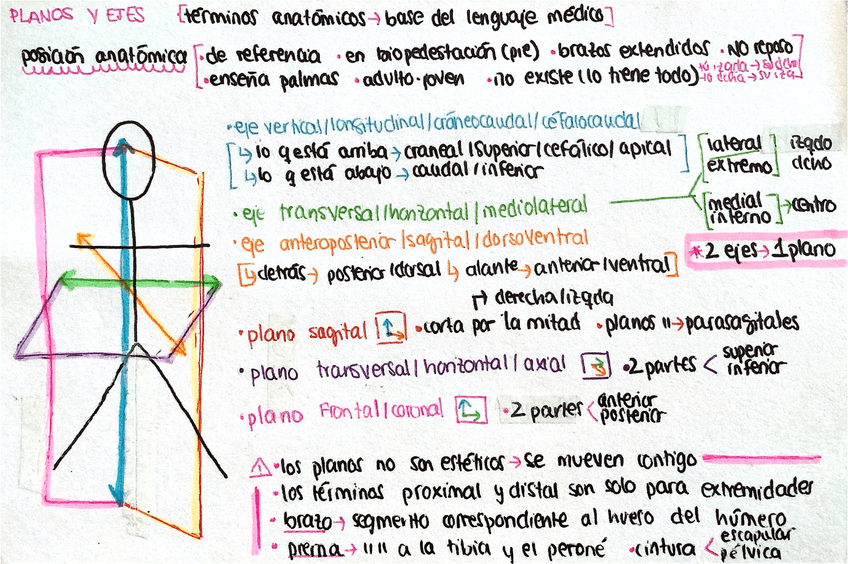 PLANOS Y EJES [términos anatómicos → base del lenguaje médico]
posición anatómica [· de referencia · en biopedestación (pie) · brazos extendidos · NO reposo
· enseña palmas · adulto joven · no existe (lo tiene todo)
· eje vertical/longitudinal/cráneocaudal/céfalocaudal
↳ lo q está arriba → craneal/superior/cefálico/apical
↳ lo q está abajo → caudal/inferior
· eje transversal/horizontal/mediolateral
lateral extremo izqdo dcho
medial interno → centro
· eje anteroposterior/sagital/dorsoventral
* 2 ejes → 1 plano
[↳ detrás → posterior/dorsal ↳ alante → anterior/ventral]
↱ derecha/izqda
· plano sagital · corta por la mitad · planos || → parasagitales
· plano transversal/horizontal/axial · 2 partes < superior inferior
· plano frontal/coronal · 2 partes < anterior posterior
⚠ · los planos no son estéticos → se mueven contigo
· los términos proximal y distal son solo para extremidades
· brazo → segmento correspondiente al hueso del húmero
· pierna → "" a la tibia y el peroné · cintura < escapular pélvica